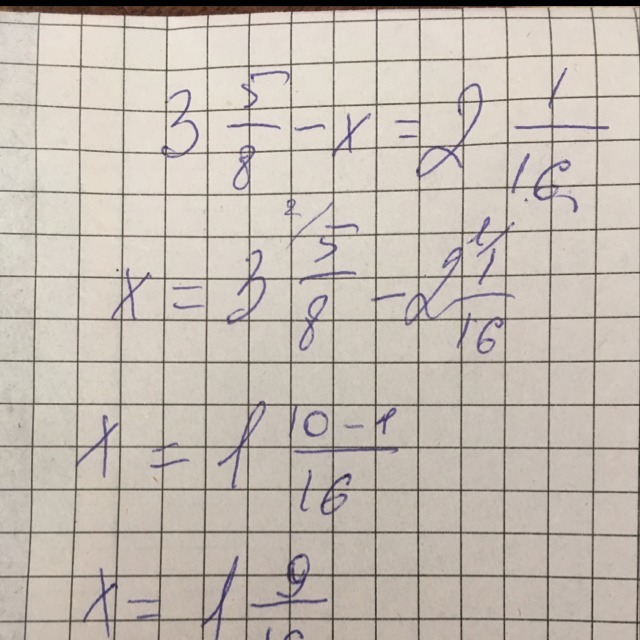 3 5/8 - x = 2 1/16
x = 3 5/8 - 2 1/16
x = 1 10-1/16
x = 1 9/16